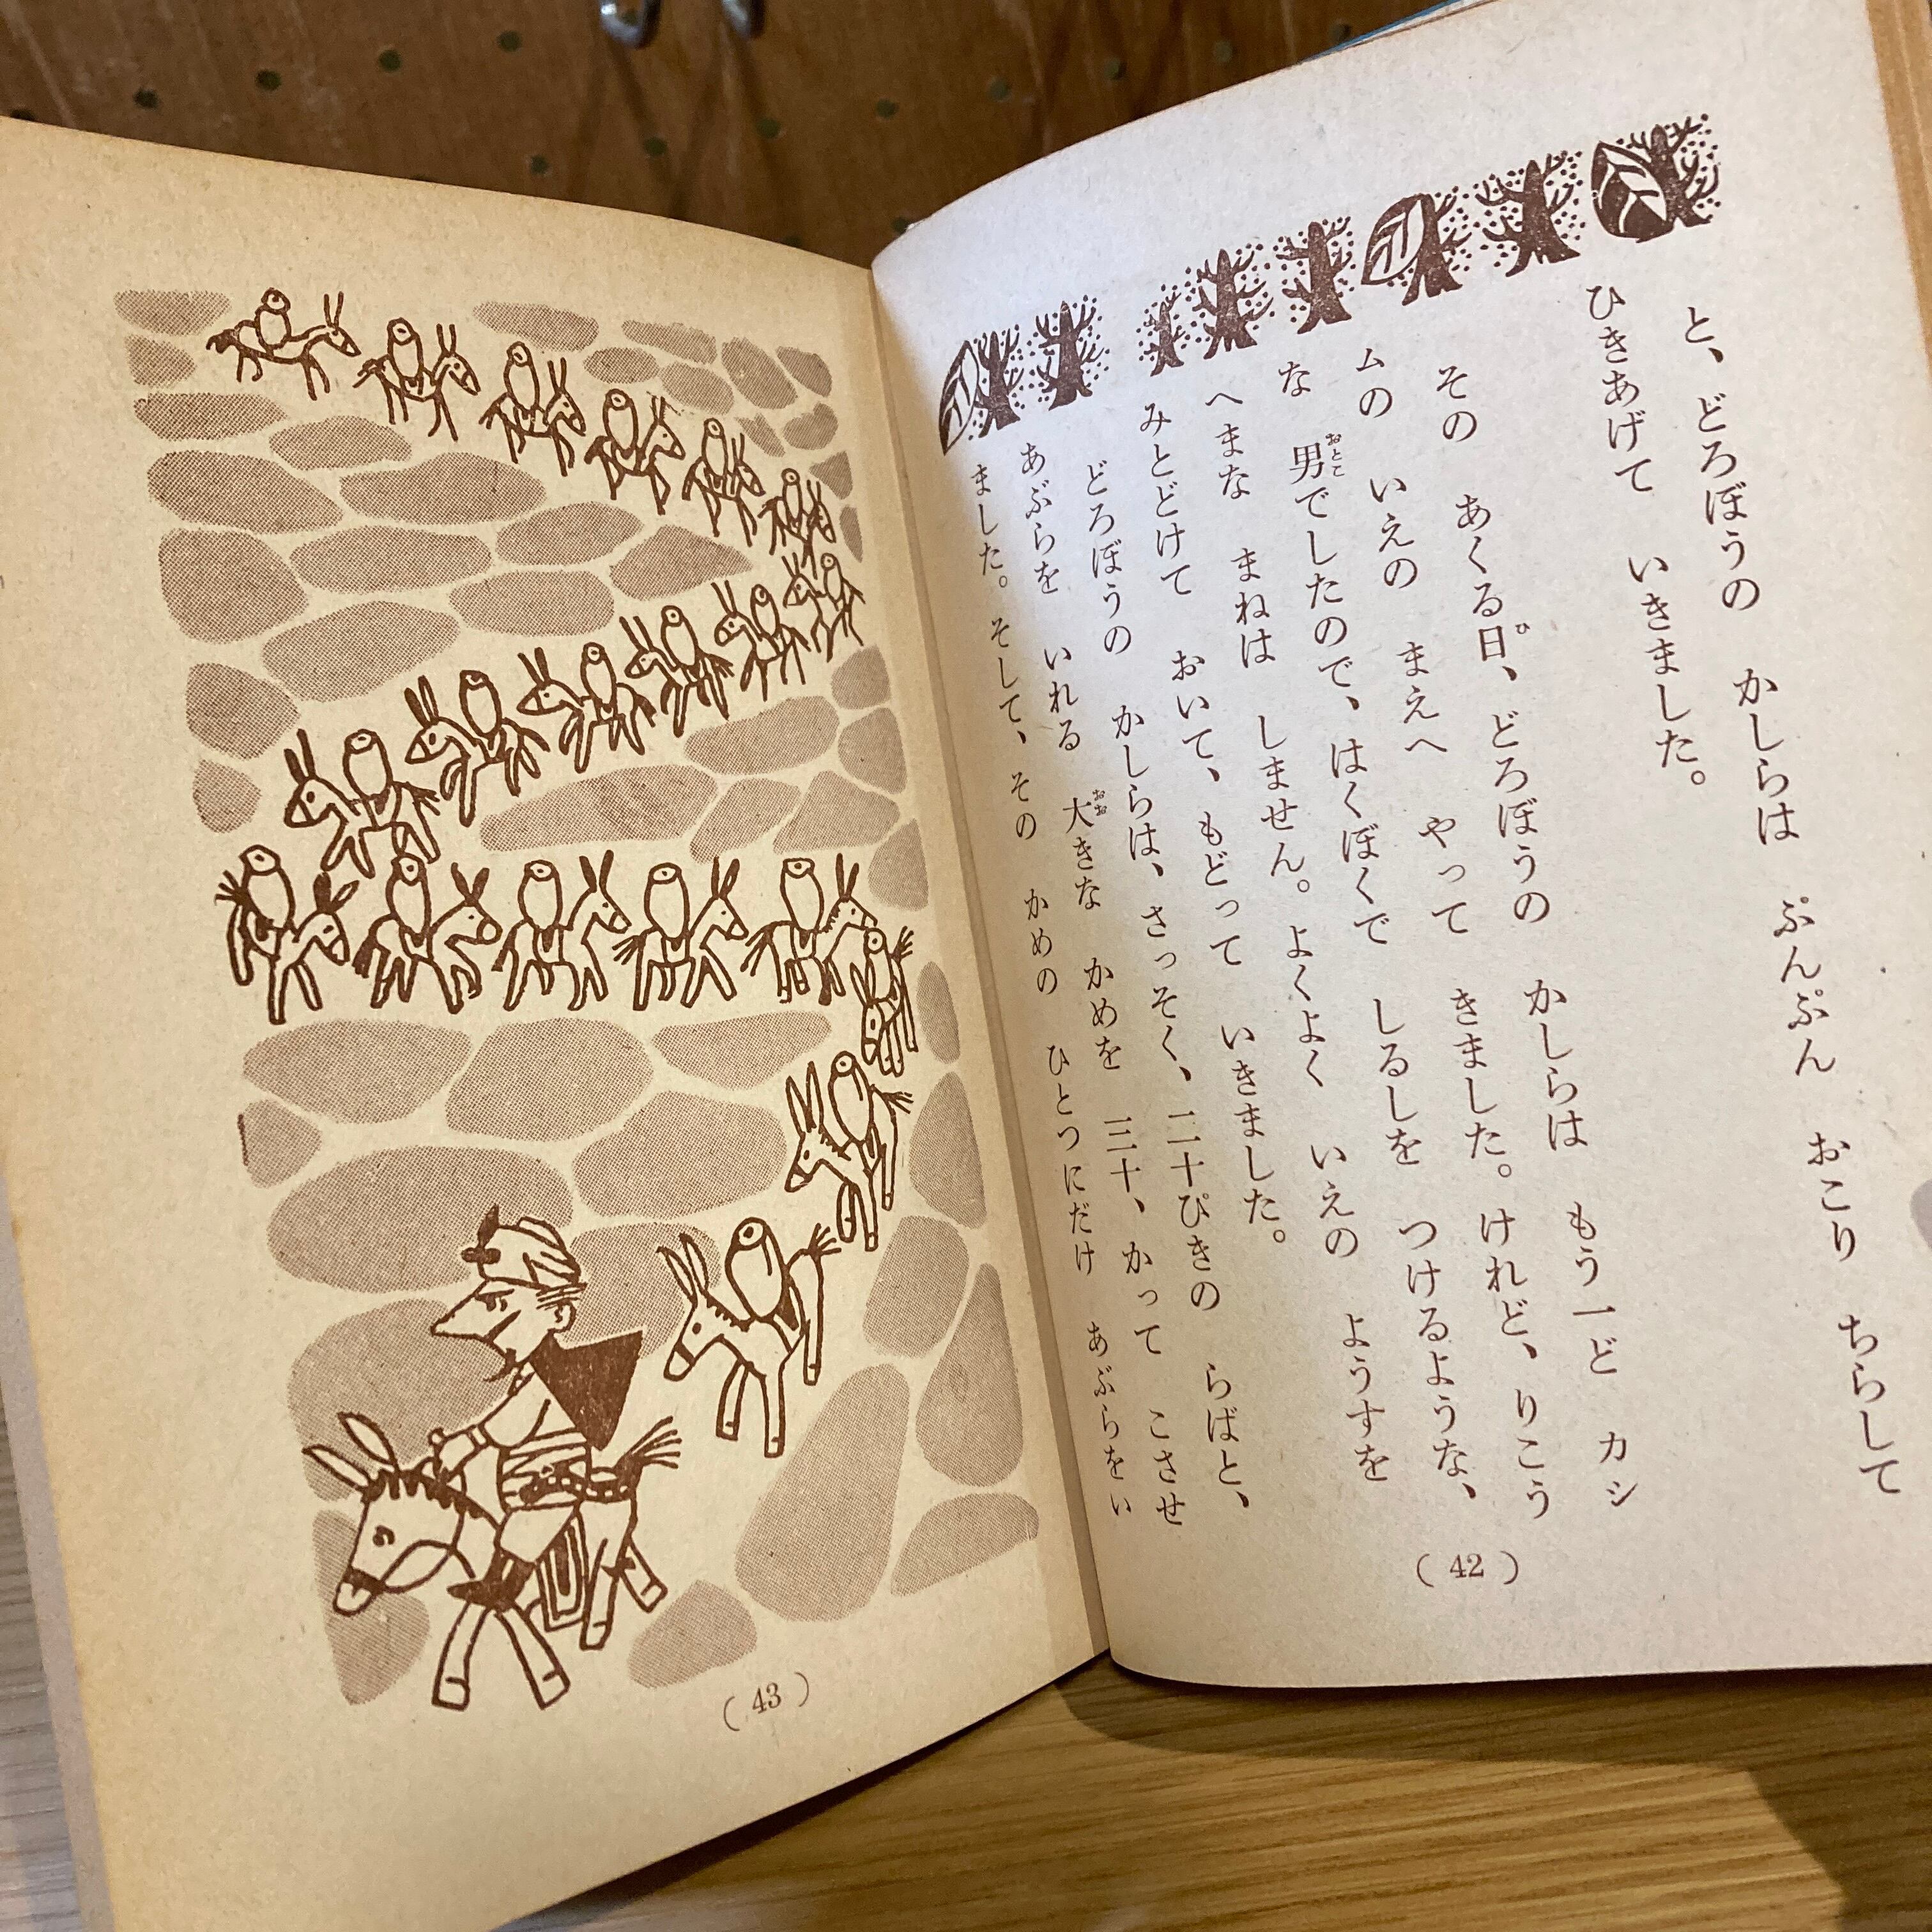 と、どろぼうの　かしらは　ぷんぷん　おこり　ちらして
ひきあげて　いきました。
その　あくる日、どろぼうの　かしらは　もう一ど　カシ
ムの　いえの　まえへ　やって　きました。けれど、りこう
な　男でしたので、はくぼくで　しるしを　つけるような、
へまな　まねは　しません。よくよく　いえの　ようすを
みとどけて　おいて、もどって　いきました。
どろぼうの　かしらは、さっそく、二十ぴきの　らばと、
あぶらを　いれる　大きな　かめを　三十、かって　こさせ
ました。そして、その　かめの　ひとつにだけ　あぶらをい
ひ
おとこ
おお
( 42 )
( 43 )